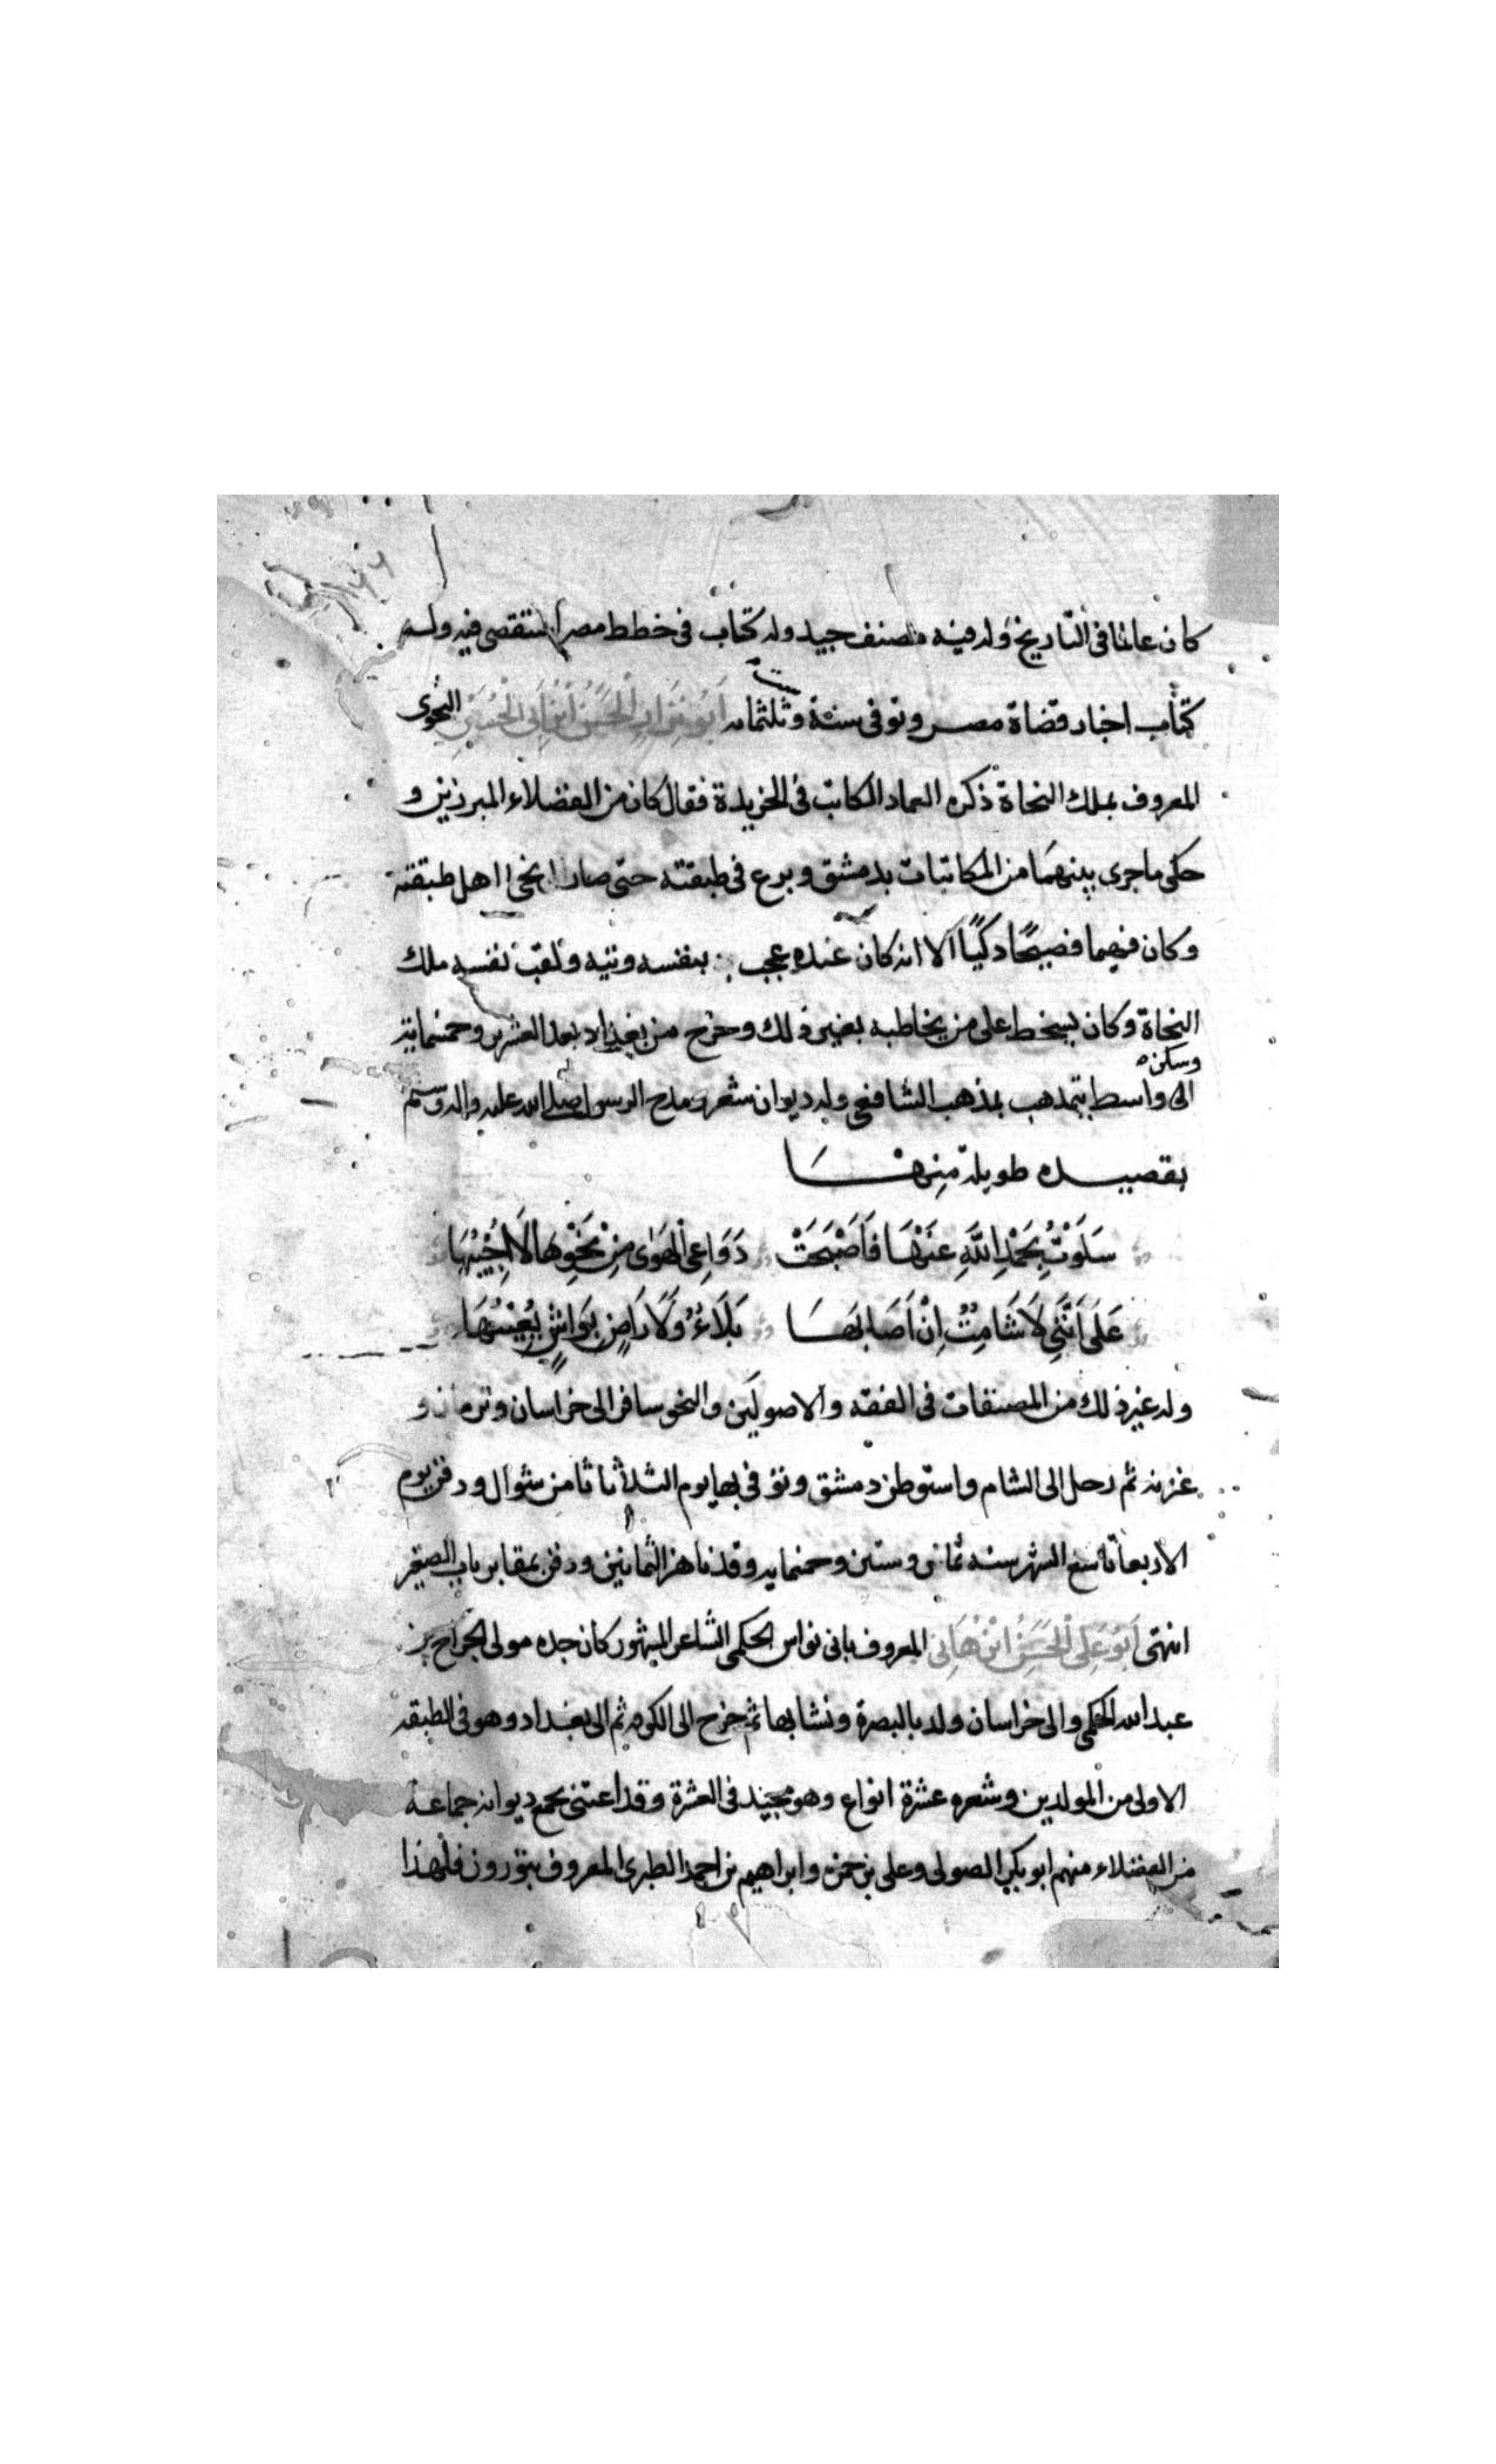 كان عالما فى التاريخ وله فيه مصنف جيد وله كتاب فى خطط مصر استقصى فيه وله
كتاب اخبار قضاة مصر وتوفى سنة وثلثمائه أبو نزار الحسن ابن أبي الحسن النحوى
المعروف بملك النحاة ذكره العماد الكاتب فى الخريدة فقال كان من الفضلاء المبرزين و
حكى ما جرى بينهما من المكاتبات بدمشق وبرع فى طبقته حتى صار انحى اهل طبقته
وكان فهيما فصيحًا ذكيًا الا انه كان عنده عجب بنفسه وتيه ولقب نفسه ملك
النحاة وكان يسخط على من يخاطبه بغير ذلك وخرج من بغداد بعد العشرين وخمسمائة
وسكن
الى واسط يتمذهب بمذهب الشافعى وله ديوان شعر ومدح الرسول صلى الله عليه واله وسلم
بقصيده طويلة مِنهَا
سَلَوْتُ بِحَمْدِ اللَّهِ عَنْهَا فَأَصْبَحَتْ دَوَاعِي الْهَوَى مِنْ نَحْوِهَا لَا أُجِيْبُهَا
عَلَى أَنَّنِي لَا شَامِتُ إِنْ أَصَابَهَا بَلَاءُ وَلَا رَاضٍ بِوَاشٍ يُعِيْبُهَا
وله غير ذلك من المصنفات فى الفقه والاصولين والنحو سافر الى خراسان وكرمان و
غزنه ثم رحل الى الشام واستوطن دمشق وتوفى بها يوم الثلاثا ثامن شوال ودفن يوم
الاربعا تاسع الشهر سنه ثمانى وستين وخمسمايه وقد ناهز الثمانين ودفن بمقابر باب الصغير
انتهى أبو علي الحسن ابن هاني المعروف بابى نواس الحكمى الشاعر المشهور كان جده مولى الجراح بن
عبد الله الحكمى والى خراسان ولد بالبصرة ونشا بها ثم خرج الى الكوفه ثم الى بغداد وهو فى الطبقه
الاولى من المولدين وشعره عشرة انواع وهو مجيد فى العشرة وقد اعتنى بجمع ديوانه جماعة
من الفضلاء منهم ابو بكر الصولى وعلى بن حمزه وابراهيم بن احمد الطبرى المعروف بتوزون فلهذا